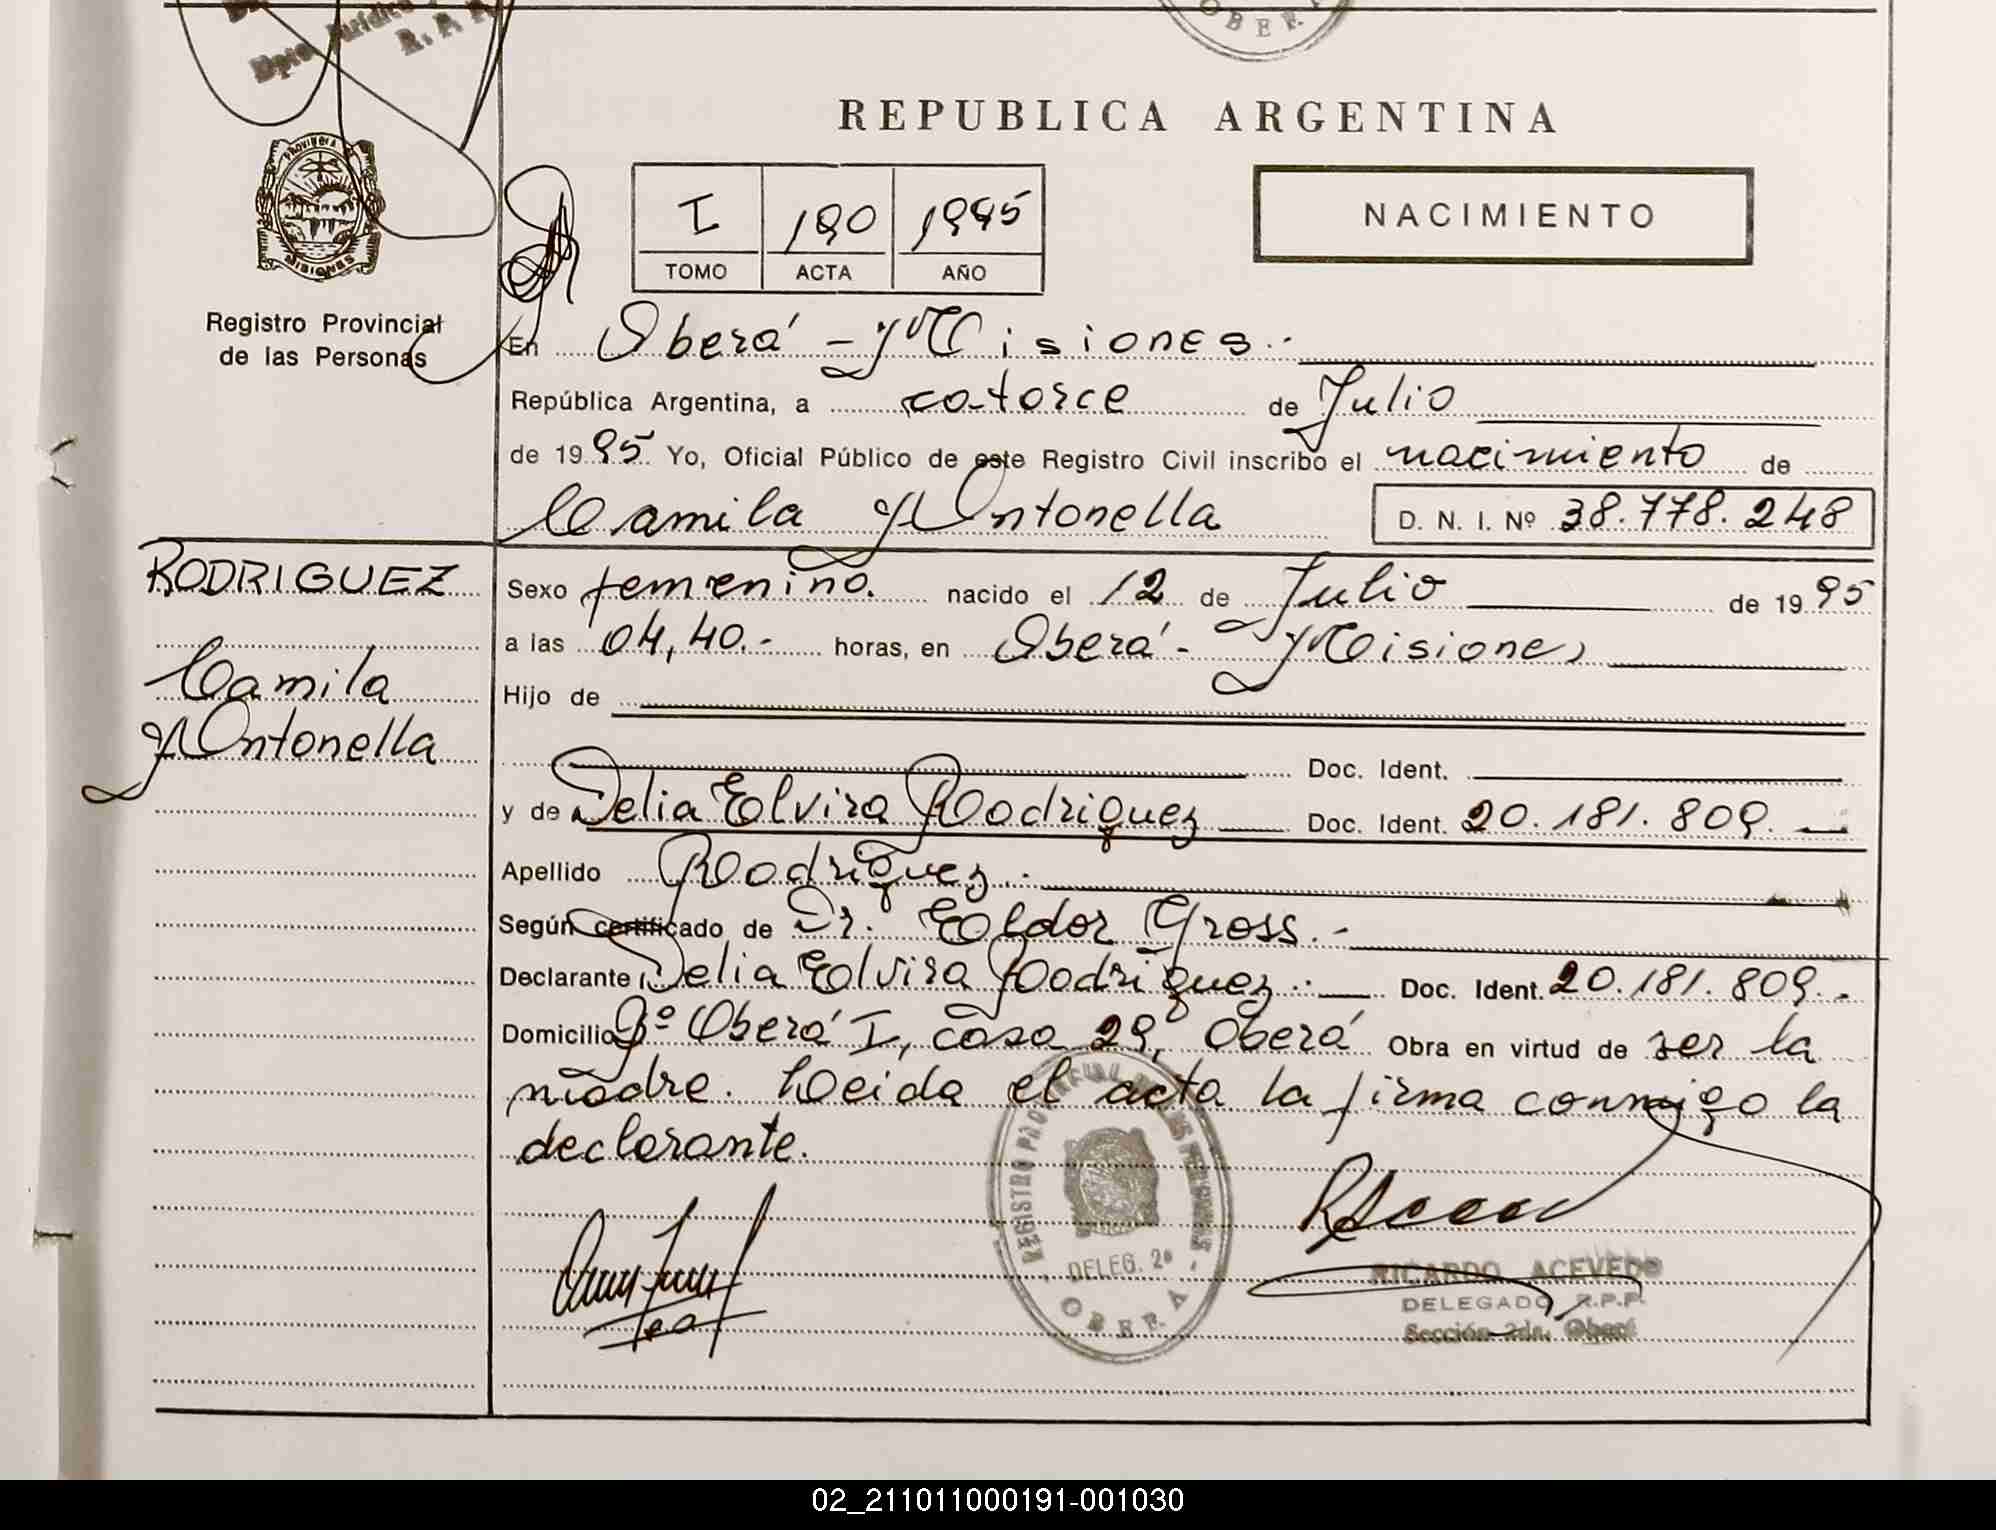 Dpto. Jurídico
R. P. P.
OBERA
REPUBLICA ARGENTINA
PROVINCIA DE
MISIONES
I 190 1995
TOMO ACTA AÑO
NACIMIENTO
Registro Provincial
de las Personas
En Oberá - Misiones.-
República Argentina, a catorce de Julio
de 1995 Yo, Oficial Público de este Registro Civil inscribo el nacimiento de
Camila Antonella D. N. I. Nº 38.778.248
RODRIGUEZ
Camila
Antonella
Sexo femenino. nacido el 12 de Julio de 1995
a las 04,40.- horas, en Oberá - Misiones
Hijo de
Doc. Ident.
y de Delia Elvira Rodriguez Doc. Ident. 20.181.809.
Apellido Rodriguez.-
Según certificado de Dr. Eldor Gross.-
Declarante Delia Elvira Rodriguez.- Doc. Ident. 20.181.809.-
Domicilio Bº Oberá I, casa 29, Oberá Obra en virtud de ser la
madre. Leida el acta la firma conmigo la
declarante.
REGISTRO PROVINCIAL DE LAS PERSONAS
DELEG. 2ª
OBERA
RICARDO ACEVEDO
DELEGADO R.P.P.
Sección 2da. Oberá
02_211011000191-001030